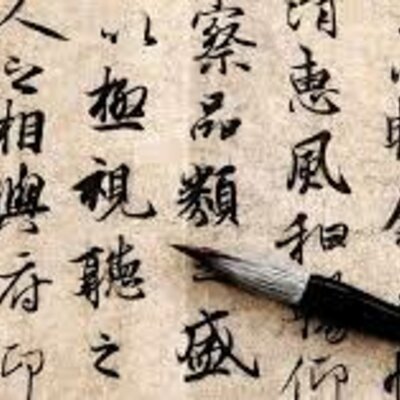 以暢
清惠風和暢仰
察品類之盛
以極視聽之
人之相與俯仰